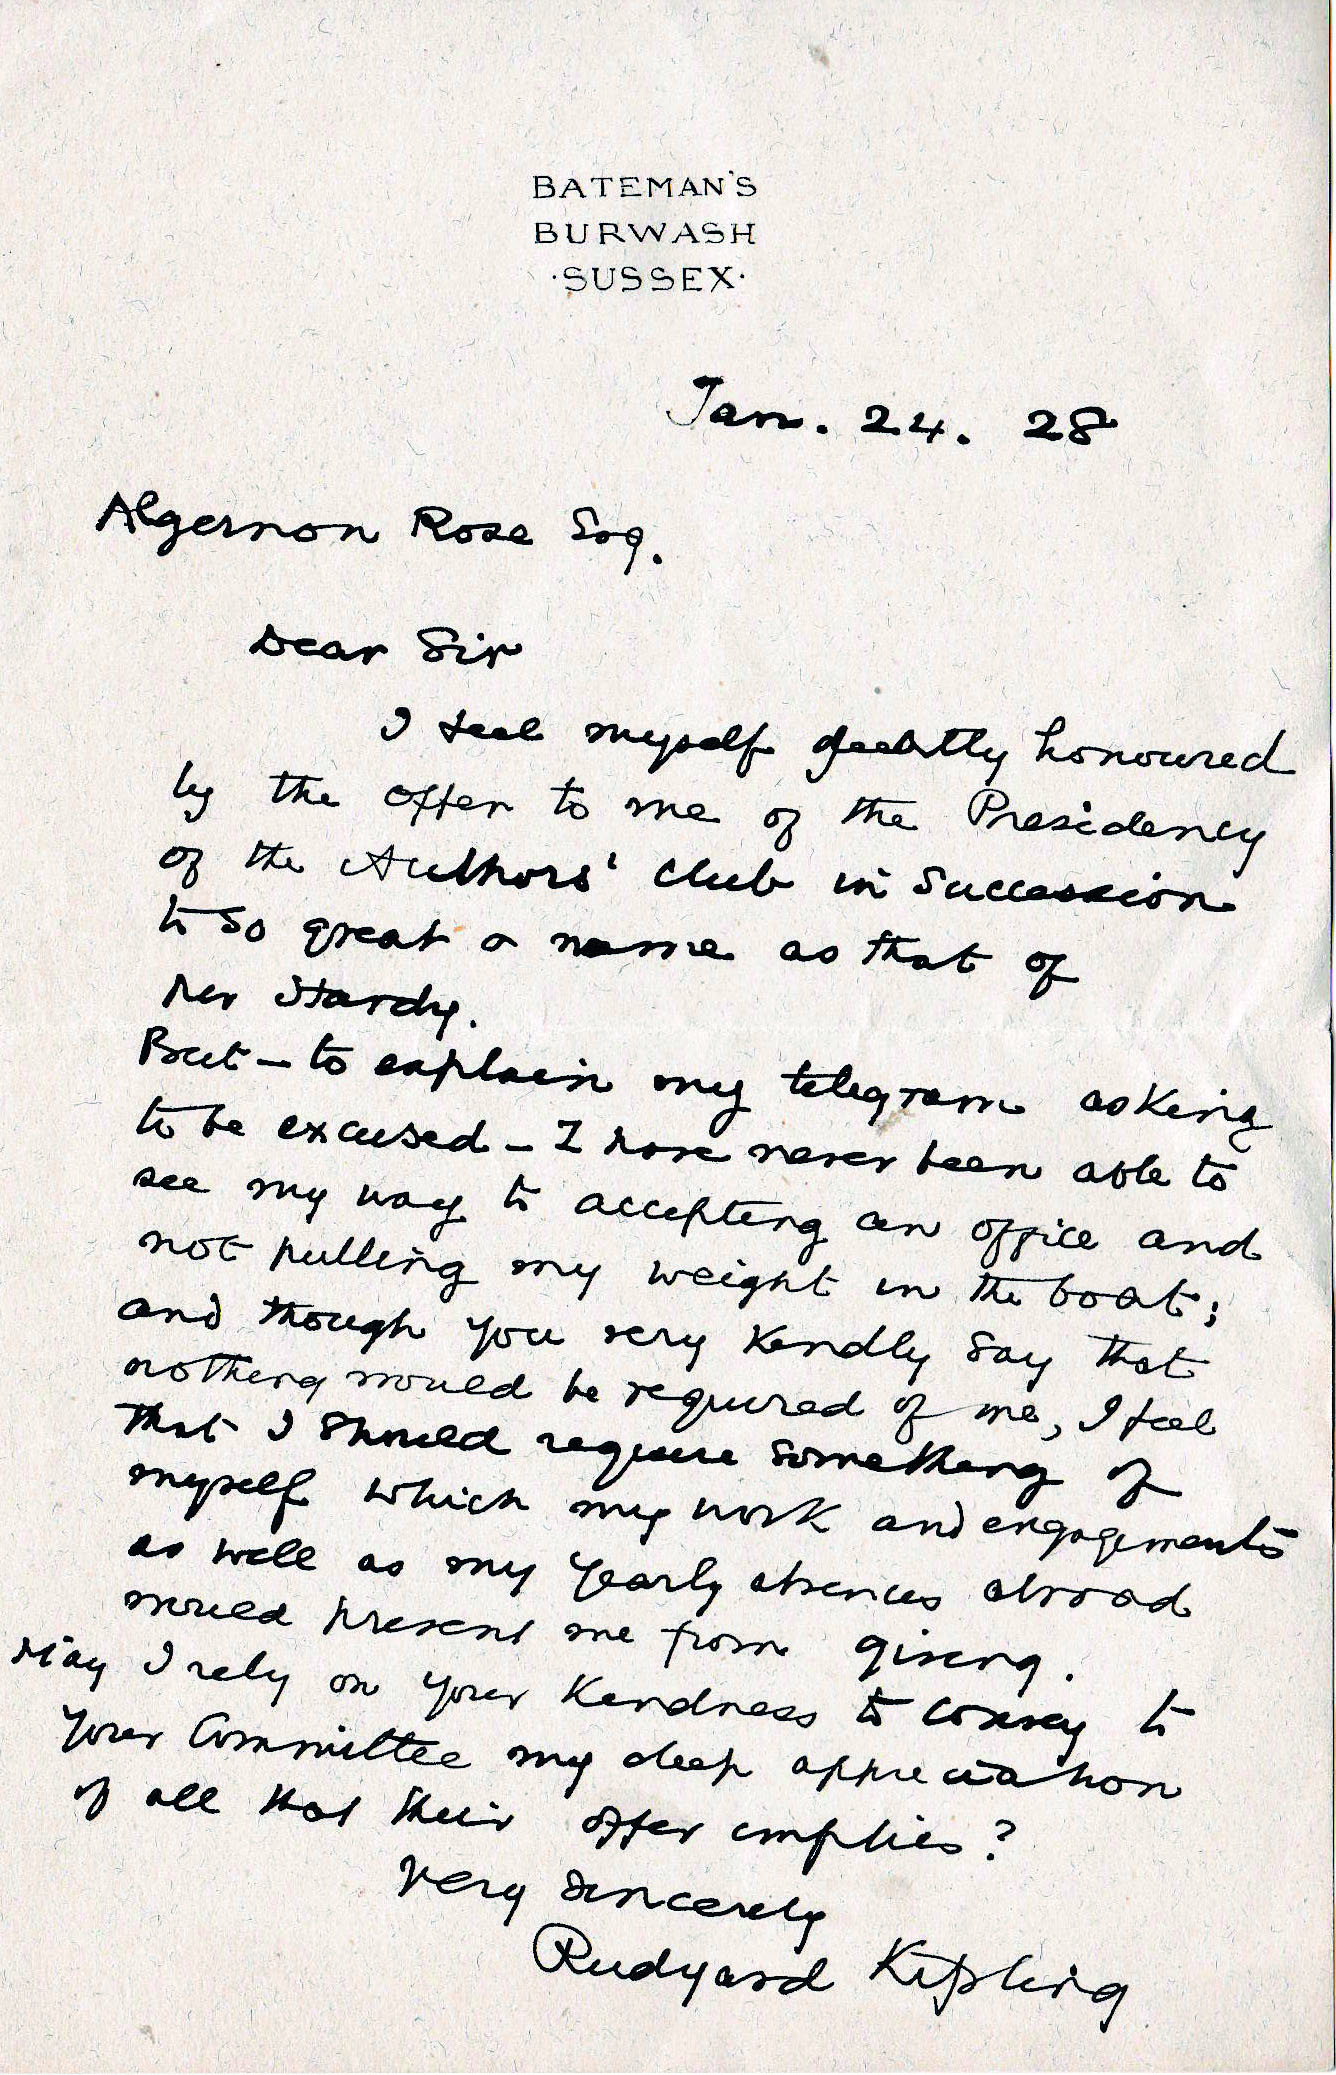 BATEMAN'S
BURWASH
·SUSSEX·
Jan. 24. 28
Algernon Rose Esq.
Dear Sir
I feel myself greatly honoured
by the offer to me of the Presidency
of the Authors' Club in succession
to so great a name as that of
Mr Hardy.
But — to explain my telegram asking
to be excused — I have never been able to
see my way to accepting an office and
not pulling my weight in the boat;
and though you very kindly say that
nothing would be required of me, I feel
that I should require something of
myself which my work and engagements
as well as my yearly absences abroad
would prevent me from giving.
May I rely on your kindness to convey to
your Committee my deep appreciation
of all that their offer implies?
Very sincerely
Rudyard Kipling